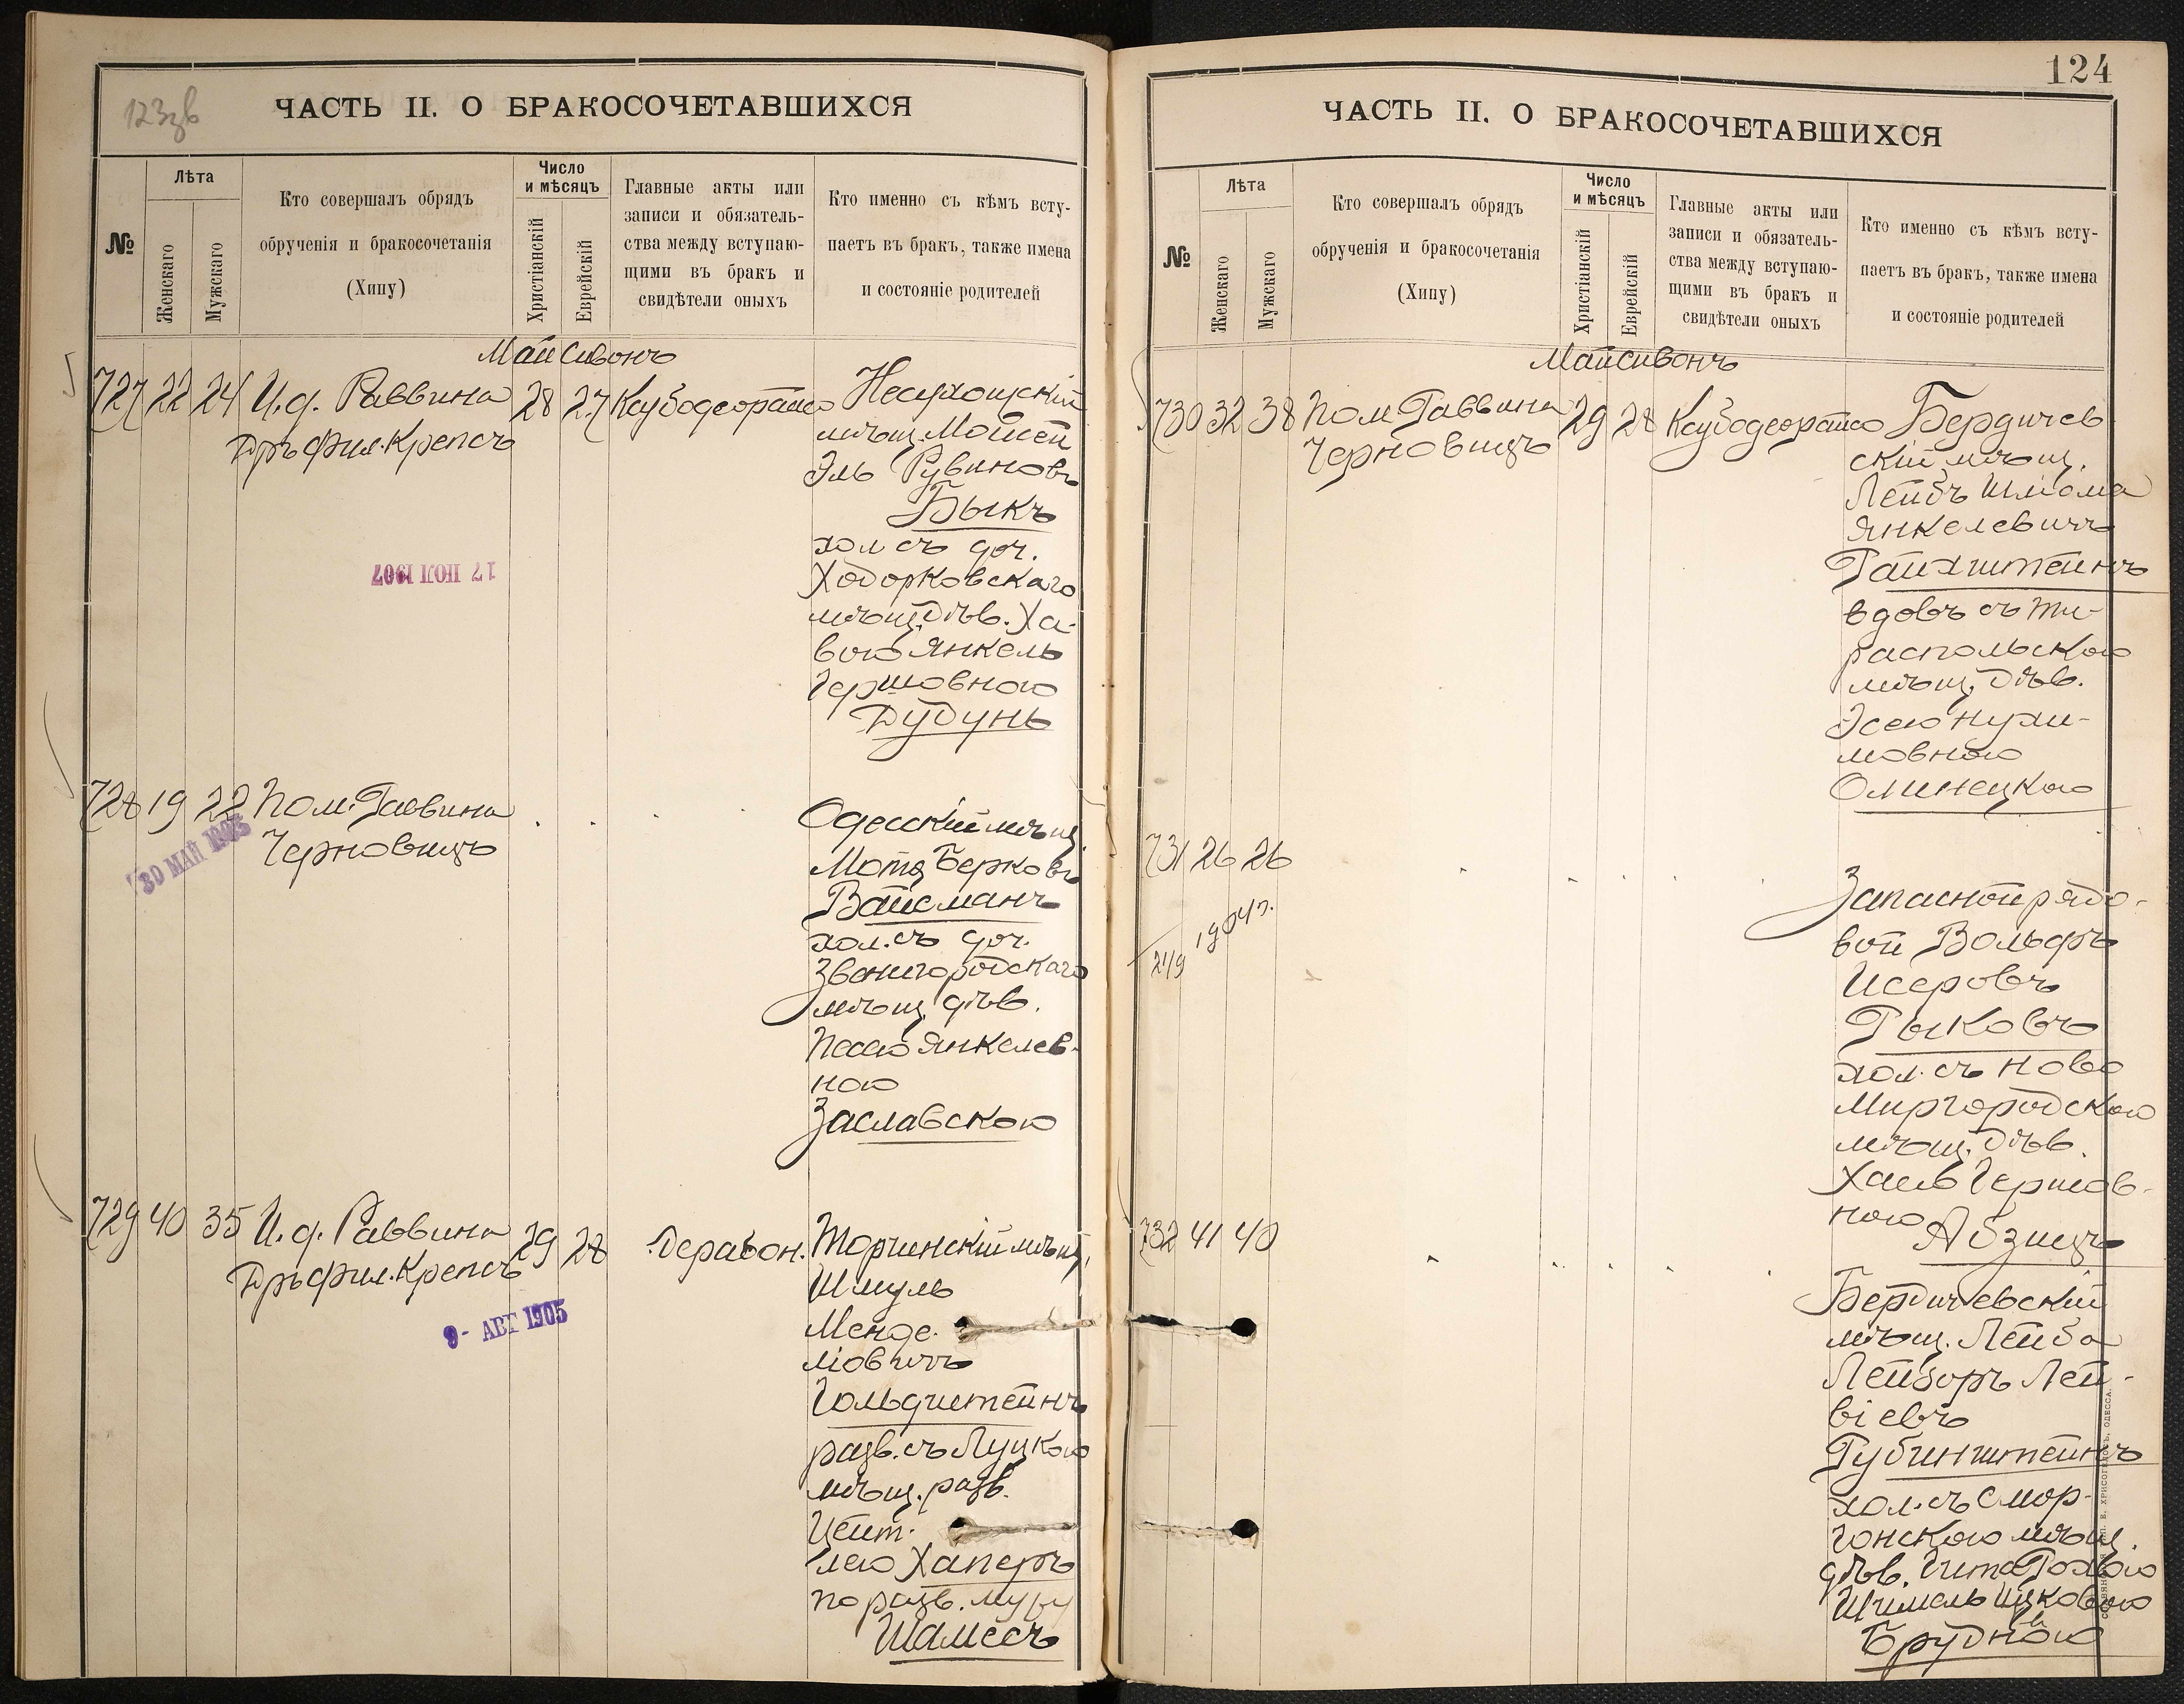 123зв
ЧАСТЬ II. О БРАКОСОЧЕТАВШИХСЯ
№
Лѣта
Женскаго
Мужскаго
Кто совершалъ обрядъ
обрученія и бракосочетанія
(Хипу)
Число
и мѣсяцъ
Христіанскій
Еврейскій
Главные акты или
записи и обязатель-
ства между вступаю-
щими въ бракъ и
свидѣтели оныхъ
Кто именно съ кѣмъ всту-
паетъ въ бракъ, также имена
и состояніе родителей
Май Сивонъ
727 22 24 И.д. Раввина 28 27
Дръ фил. Крепсъ
мѣщ. Мойсей
Эль Рувиновъ
Быкъ
хол съ доч.
Ходорковскаго
мѣщ. дѣв. Ха-
вою Янкель
Гершовною
Дудунь
17 ІЮЛ 1907
728 19 22 Пом. Раввина
Черновицъ
30 МАЙ
Одесскій мѣщ
Мотя Берковъ
Вайсманъ
хол. съ доч.
Звенигородскаго
мѣщ. дѣв.
Песею Янкелев-
ною
Заславскою
729 40 35 И.д. Раввина 29 28
Дръ фил. Крепсъ
9- АВГ 1905
Торчинскій мѣщ.
Шмуль
Менде-
ліовичъ
Гольдштейнъ
разв. съ Луцкою
мѣщ. разв.
Цейт-
лею Хаперъ
по разв. мужу
Шамесъ
124
ЧАСТЬ II. О БРАКОСОЧЕТАВШИХСЯ
№
Лѣта
Женскаго
Мужскаго
Кто совершалъ обрядъ
обрученія и бракосочетанія
(Хипу)
Число
и мѣсяцъ
Христіанскій
Еврейскій
Главные акты или
записи и обязатель-
ства между вступаю-
щими въ бракъ и
свидѣтели оныхъ
Кто именно съ кѣмъ всту-
паетъ въ бракъ, также имена
и состояніе родителей
Май Сивонъ
730 32 38 Пом. Раввина 29 28 Бердичев
Черновицъ
скій мѣщ.
Лейбъ Шліома
Янкелевичъ
Райхштейнъ
вдовъ съ Ти-
распольскою
мѣщ. дѣв.
Эсею Нухи-
мовною
Олинецкою
731 26 26
21/9 1904 г.
Запасной рядо-
вой Вольфъ
Исеровъ
Рыковъ
хол. съ Ново
Миргородскою
мѣщ. дѣв.
Хаею Гершов-
ною Абзицъ
732 41 40
Бердичевскій
мѣщ. Лейба
Лейзоръ Лей-
віевъ
Рубинштейнъ
хол. съ Смор-
гонскою мѣщ.
дѣв. Гита Рохлою
Шимель Ицковою
Брудною